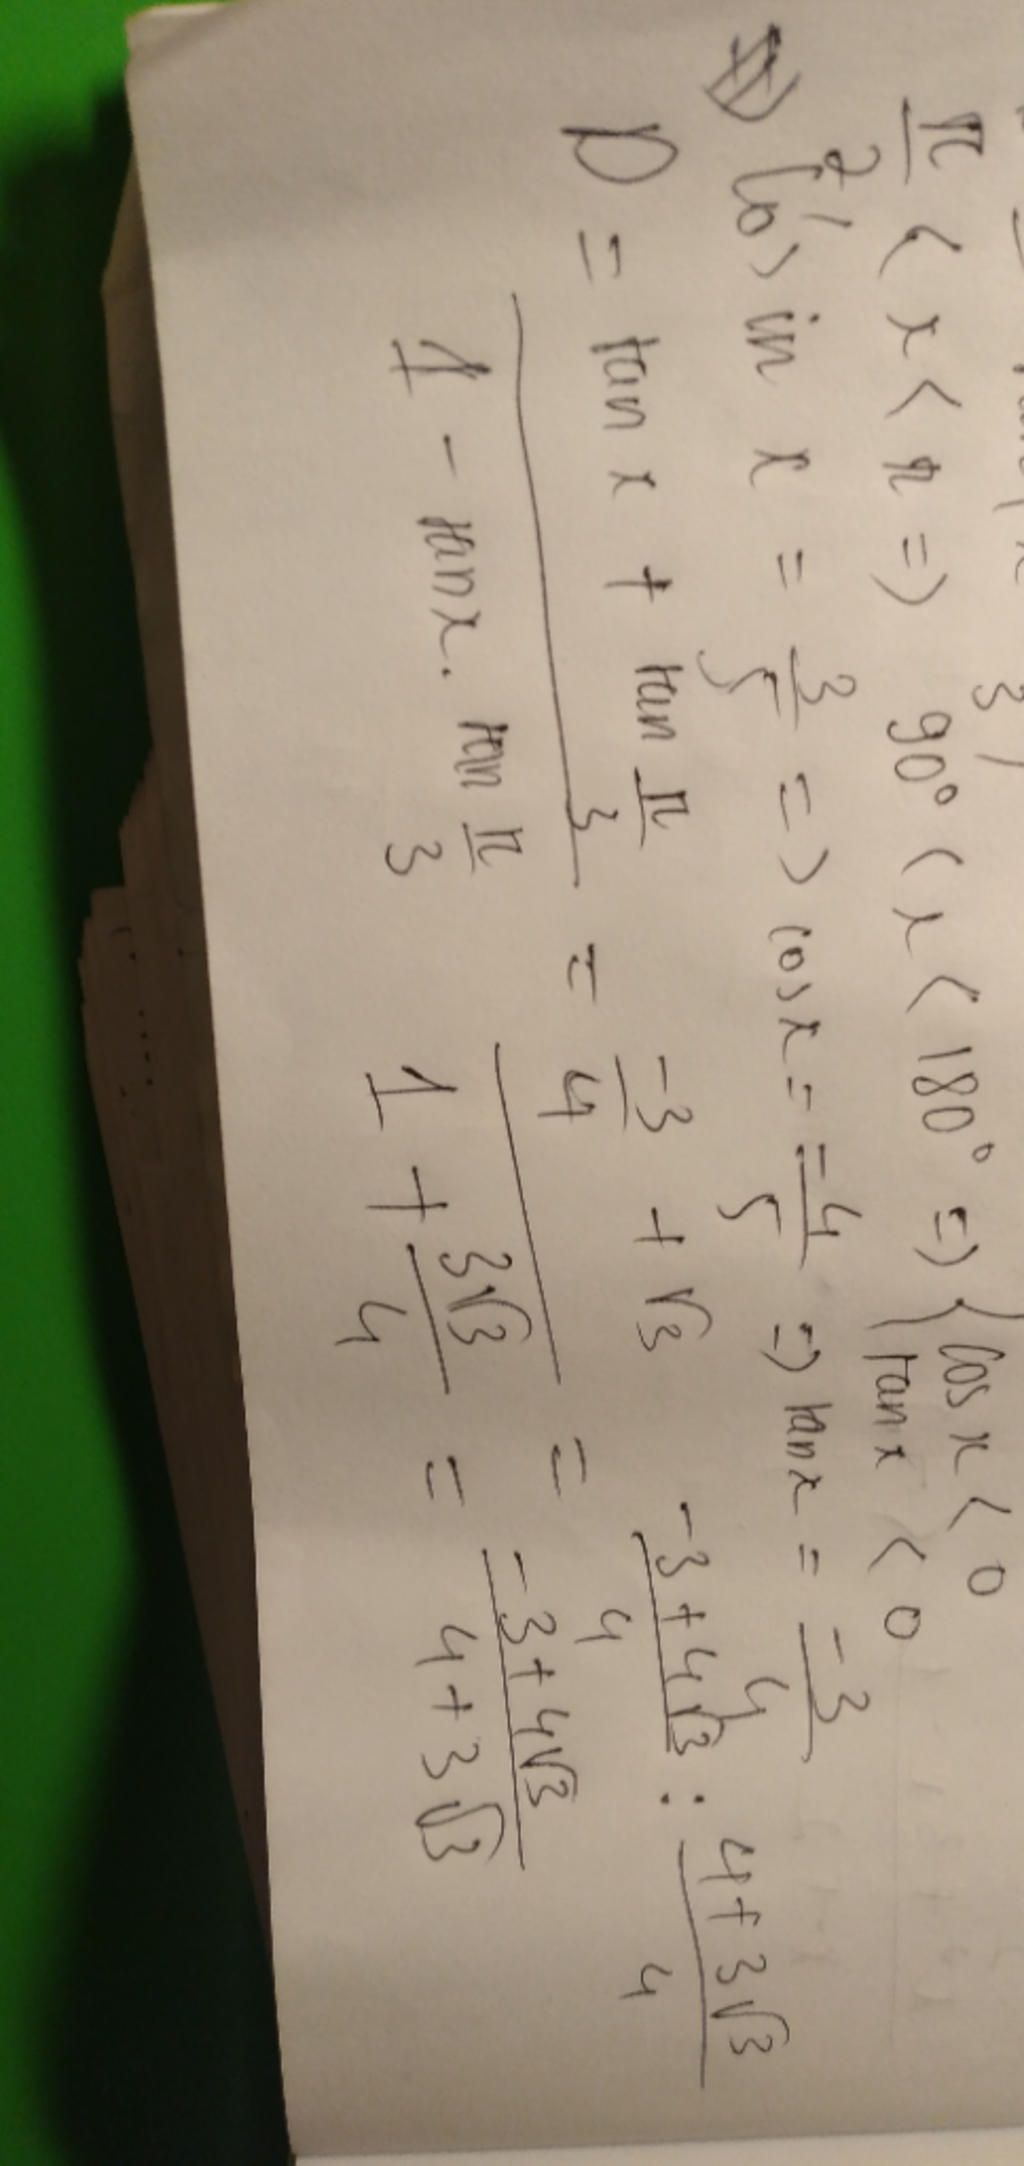 π/2 < x < π => 90° < x < 180° => { cos x < 0
tan x < 0
Có sin x = 3/5 => cos x = -4/5 => tan x = -3/4
D = (tan x + tan π/3)/(1 - tan x . tan π/3) = (-3/4 + √3)/(1 + 3√3/4) = (-3 + 4√3)/4 : (4 + 3√3)/4
= (-3 + 4√3)/(4 + 3√3)